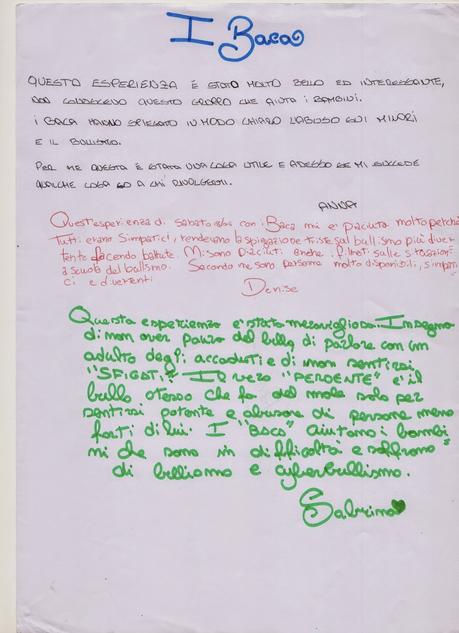 I Baca
QUESTO ESPERIENZA È STATO MOLTO BELLO ED INTERESSANTE,
NON CONOSCEVO QUESTO GRUPPO CHE AIUTA I BAMBINI.
I BACA HANNO SPIEGATO IN MODO CHIARO L'ABUSO SUI MINORI
E IL BULLISMO.
PER ME QUESTA È STATA UNA COSA UTILE E ADESSO SE MI SUCCEDE
QUALCHE COSA SO A CHI RIVOLGERMI.
ANNA
Quest'esperienza di sabato con i Baca mi è piaciuta molto perché
Tutti erano simpatici, rendevano la spiegazione triste sul bullismo più diver
tente facendo battute. Mi sono piaciuti anche i filmati sulle situazioni
a scuola del bullismo. Secondo me sono persone molto disponibili, simpati
ci e divertenti
Denise
Questa esperienza è stata meravigliosa. Insegna
di non aver paura del bullo, di parlare con un
adulto degli accaduti e di non sentirsi
"SFIGATI". Il vero "PERDENTE" è il
bullo stesso che fa del male solo per
sentirsi potente e abusare di persone meno
forti di lui. I "BACA" aiutano i bambi
ni che sono in difficoltà e soffrono
di bullismo e cyberbullismo.
Sabrina